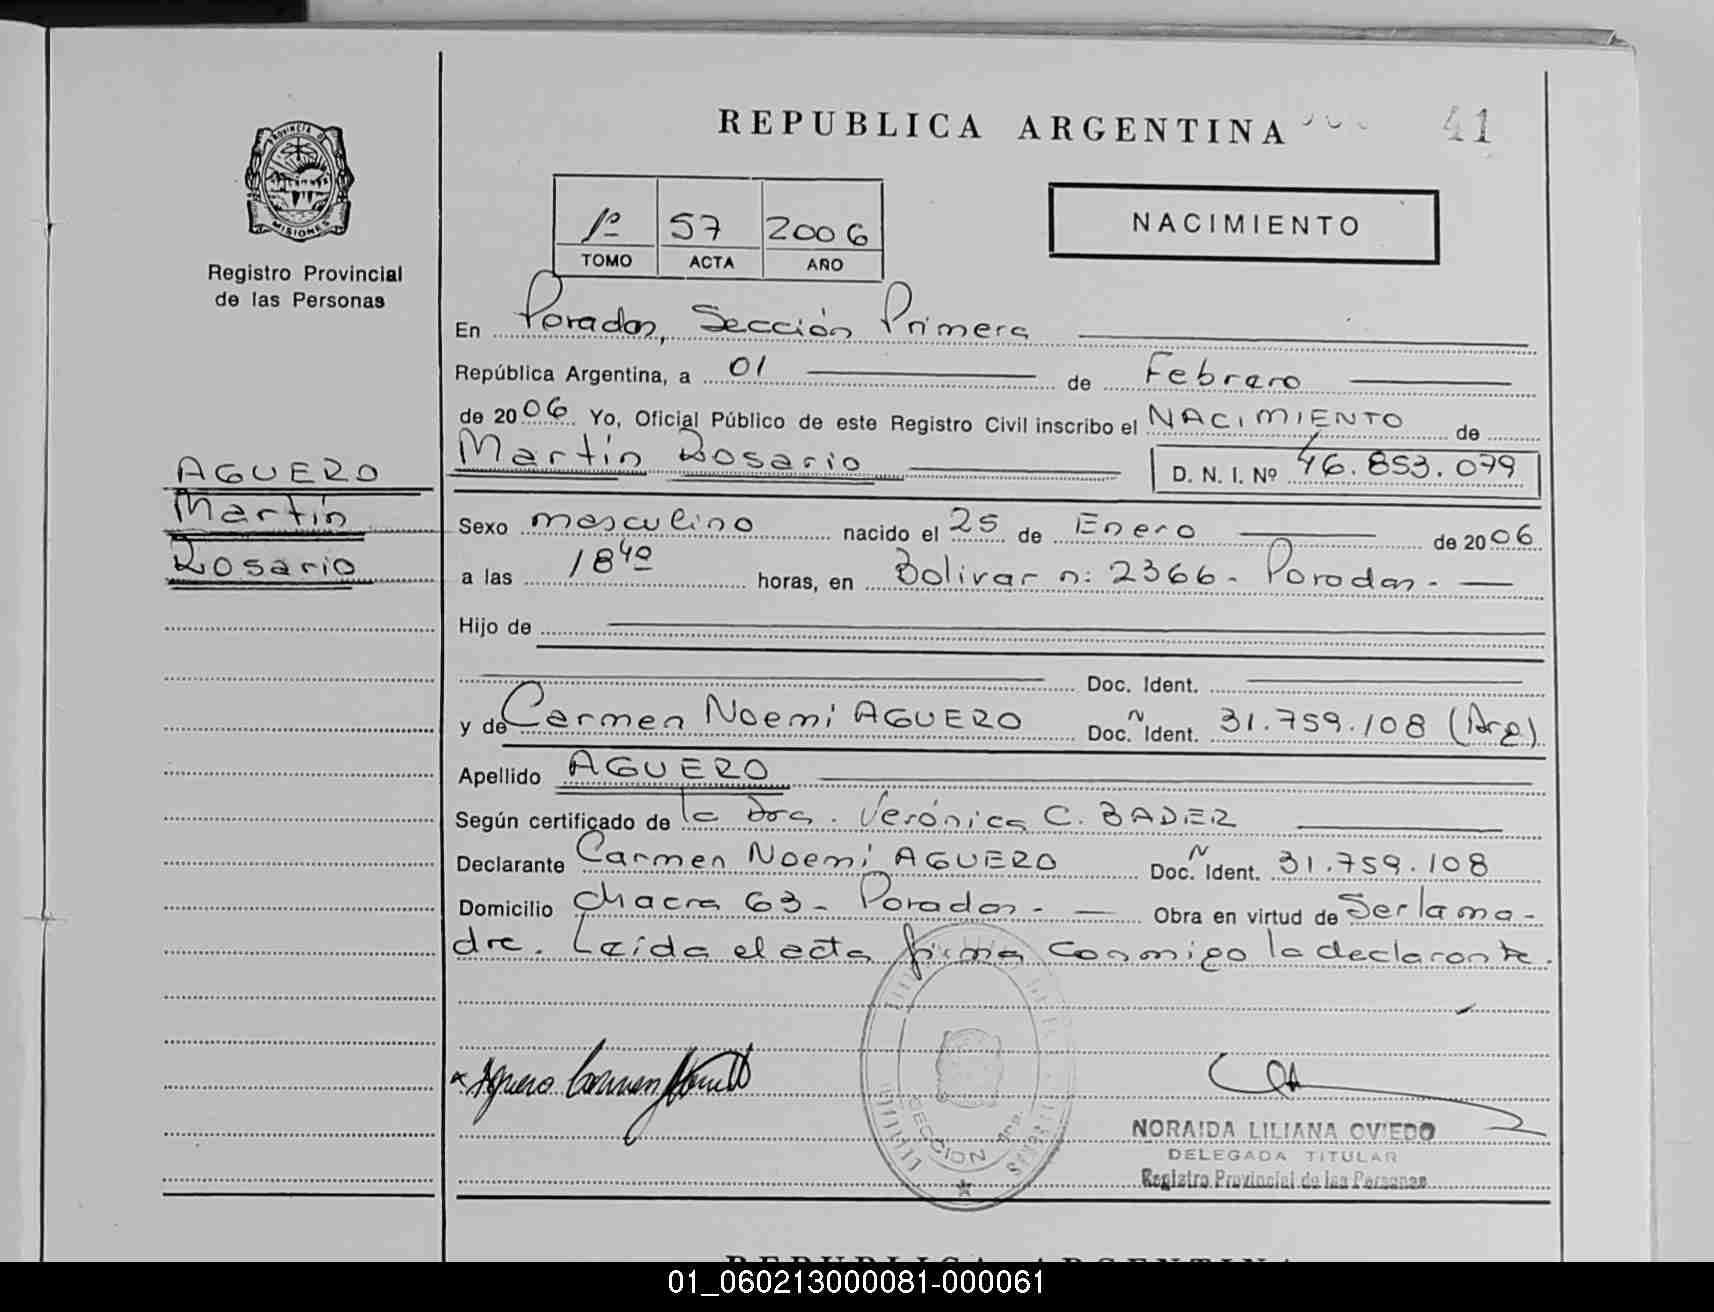 REPUBLICA ARGENTINA
41
PROVINCIA DE
MISIONES
Registro Provincial
de las Personas
1º 57 2006
TOMO ACTA AÑO
NACIMIENTO
En Posadas, Sección Primera
República Argentina, a 01 de Febrero
de 2006 Yo, Oficial Público de este Registro Civil inscribo el NACIMIENTO de
Martín Rosario D. N. I. Nº 46.853.079
AGUERO
Martín
Rosario
Sexo masculino nacido el 25 de Enero de 2006
a las 18⁴⁰ horas, en Bolivar n: 2366 - Posadas -
Hijo de
Doc. Ident.
y de Carmen Noemi AGUERO Doc. N Ident. 31.759.108 (Arg)
Apellido AGUERO
Según certificado de la Dra. Verónica C. BADER
Declarante Carmen Noemi AGUERO Doc. N Ident. 31.759.108
Domicilio Chacra 63 - Posadas - Obra en virtud de Ser la ma-
dre. Leída el acta firma conmigo la declarante.
Aguero Carmen Noemi
SECCION 1ra.
NORAIDA LILIANA OVIEDO
DELEGADA TITULAR
Registro Provincial de las Personas
REPUBLICA ARGENTINA
01_060213000081-000061